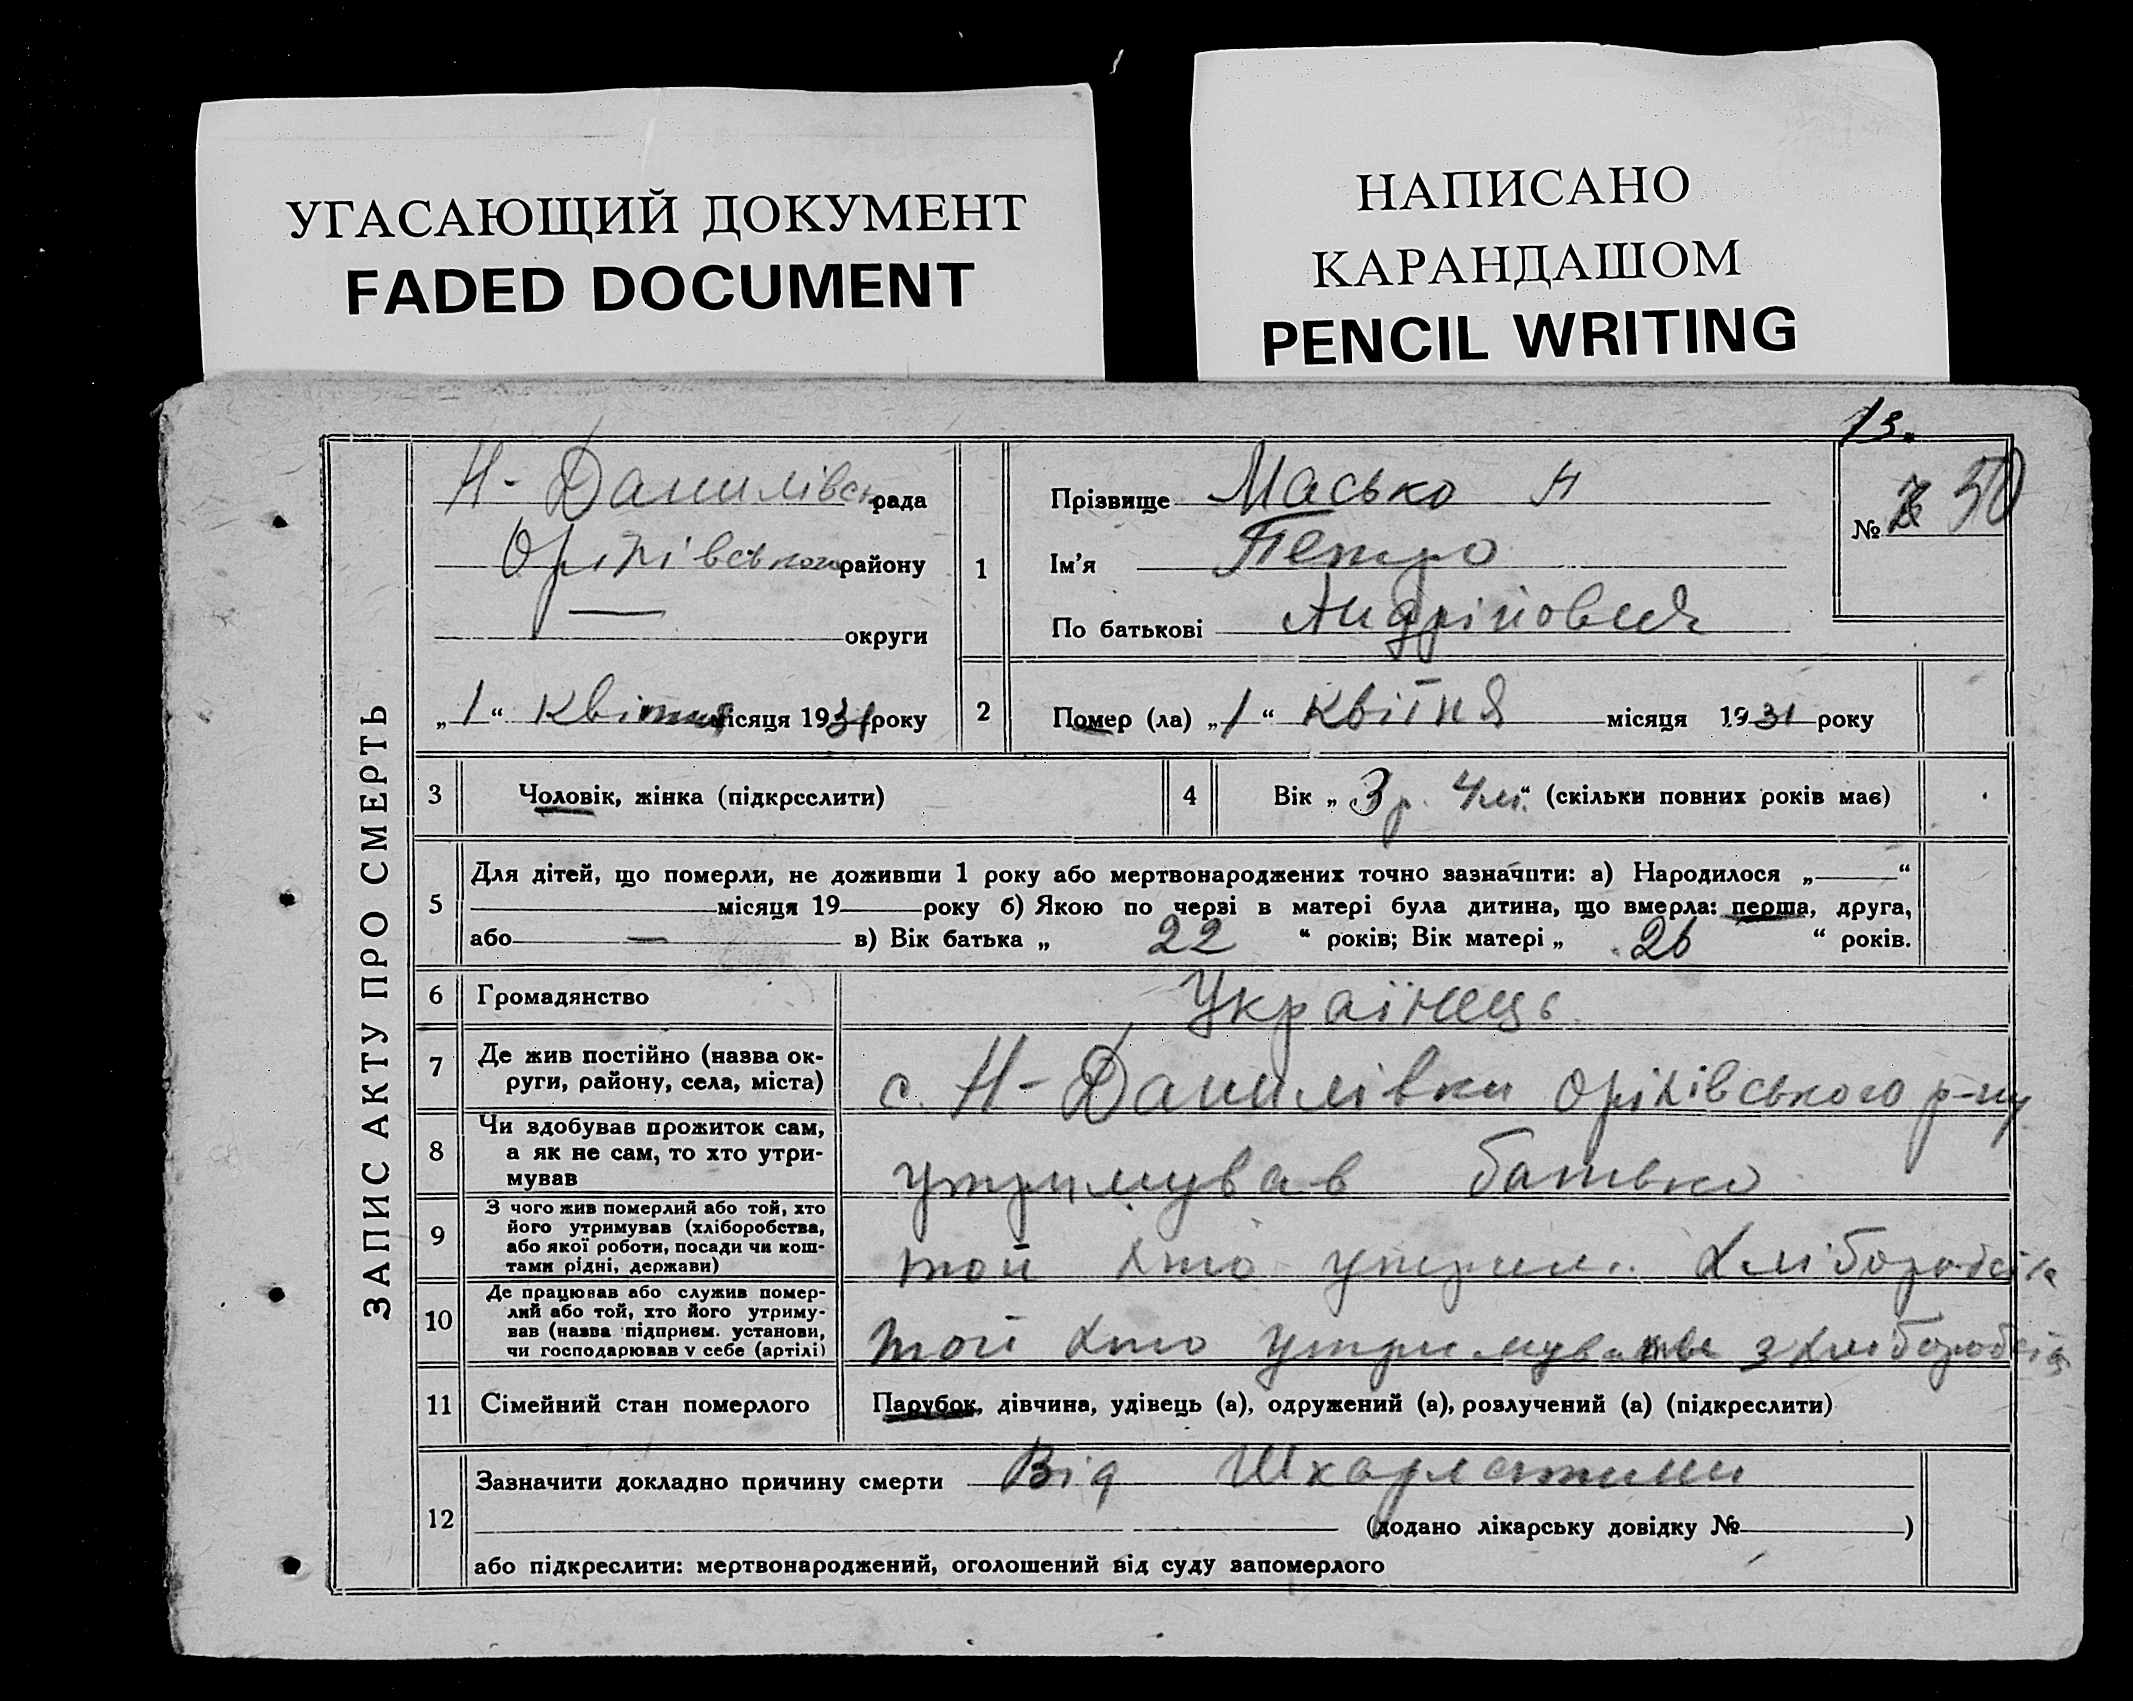 УГАСАЮЩИЙ ДОКУМЕНТ
FADED DOCUMENT
НАПИСАНО
КАРАНДАШОМ
PENCIL WRITING
13.
ЗАПИС АКТУ ПРО СМЕРТЬ
Н-Данилівськ рада
Оріхівського району
— округи
„1“ квітня місяця 1931 року
1
Прізвище Масько Н
Ім'я Петро
По батькові Андрійович
№ 50
2
Помер (ла) „1“ квітня місяця 1931 року
3
Чоловік, жінка (підкреслити)
4
Вік „3 р. 4 м.“ (скільки повних років має)
5
Для дітей, що померли, не доживши 1 року або мертвонароджених точно зазначити: а) Народилося „—“
місяця 19 року б) Якою по черзі в матері була дитина, що вмерла: перша, друга,
або — в) Вік батька „22“ років; Вік матері „26“ років.
6
Громадянство
Українець
7
Де жив постійно (назва ок-
руги, району, села, міста)
с. Н-Данилівки Оріхівського р-ну
8
Чи здобував прожиток сам,
а як не сам, то хто утри-
мував
утримував батько
9
З чого жив померлий або той, хто
його утримував (хліборобства,
або якої роботи, посади чи кош-
тами рідні, держави)
той хто утрим..
10
Де працював або служив помер-
лий або той, хто його утриму-
вав (назва підприєм. установи,
чи господарював у себе (артілі)
той хто з
11
Сімейний стан померлого
Парубок, дівчина, удівець (а), одружений (а), розлучений (а) (підкреслити)
12
Зазначити докладно причину смерти Від Шкарлатини
(додано лікарську довідку № )
або підкреслити: мертвонароджений, оголошений від суду запомерлого